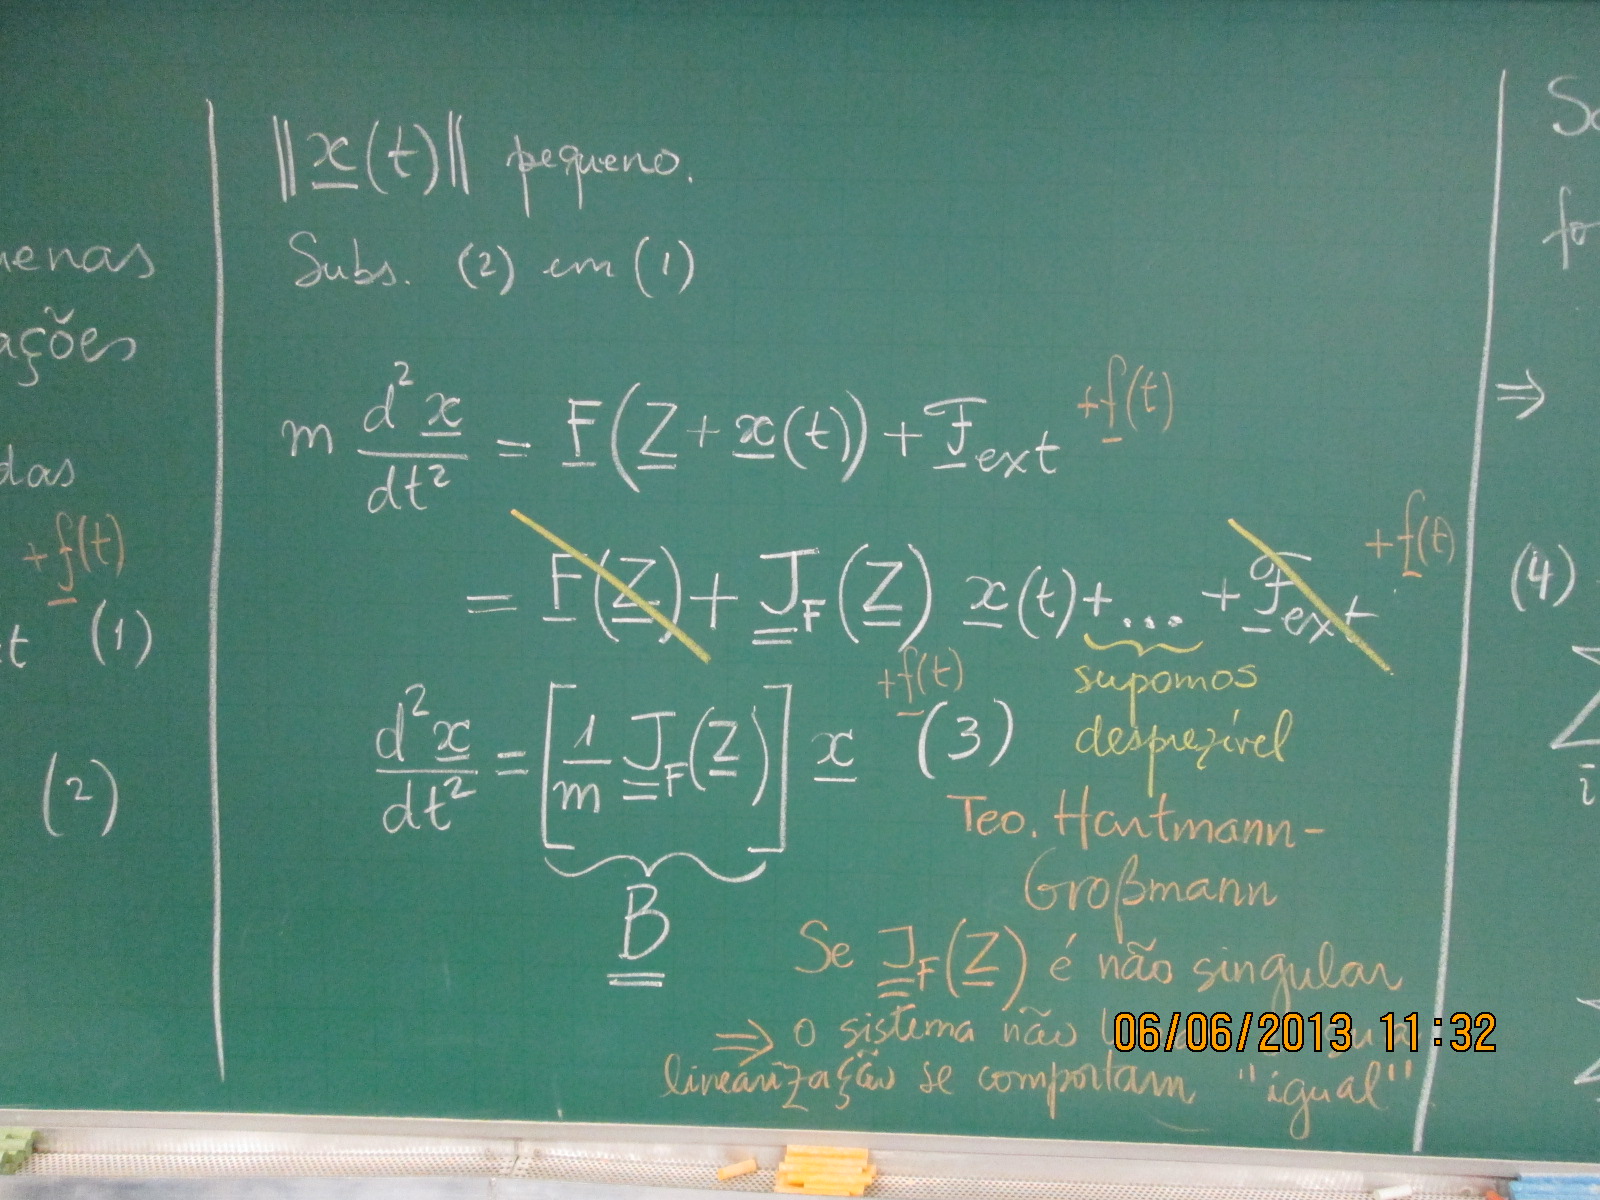 ‖x(t)‖ pequeno.
Subs. (2) em (1)
m d²x/dt² = F(Z + x(t)) + F_ext + f(t)
= F(Z) + J_F(Z) x(t) + ... + F_ext + f(t)
supomos
desprezível
d²x/dt² = [1/m J_F(Z)] x + f(t) (3)
B
Teo. Hartmann-
Großmann
Se J_F(Z) é não singular
⇒ o sistema não
linearização se comportam "igual"
06/06/2013 11:32
ações
das
+ f(t)
(1)
(2)
⇒
(4)